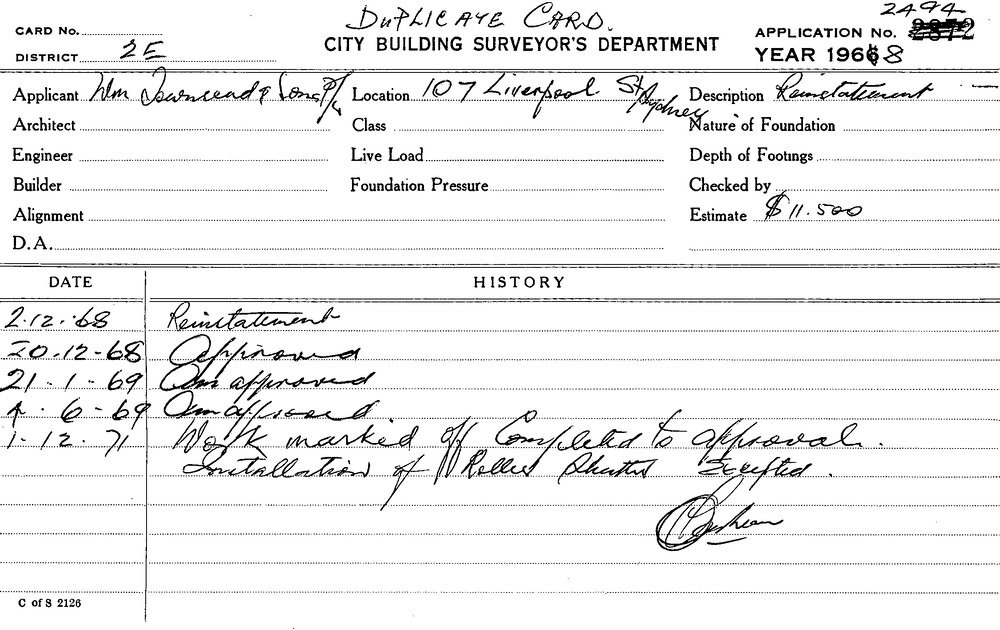 DUPLICATE CARD.
2494
CARD No.
CITY BUILDING SURVEYOR'S DEPARTMENT
APPLICATION No. 2872
DISTRICT 2E
YEAR 1968
Applicant Wm Townsend & Sons P/L Location 107 Liverpool St Sydney Description Reinstatement
Architect Class Nature of Foundation
Engineer Live Load Depth of Footings
Builder Foundation Pressure Checked by
Alignment Estimate $11.500
D.A.
DATE HISTORY
2.12.68 Reinstatement
20.12-68 Approved
21.1-69 Am approved
6-69 Am approved.
1.12.71 Work marked off Completed to approval.
Installation of Roller Shutter Excepted.
C of S 2126